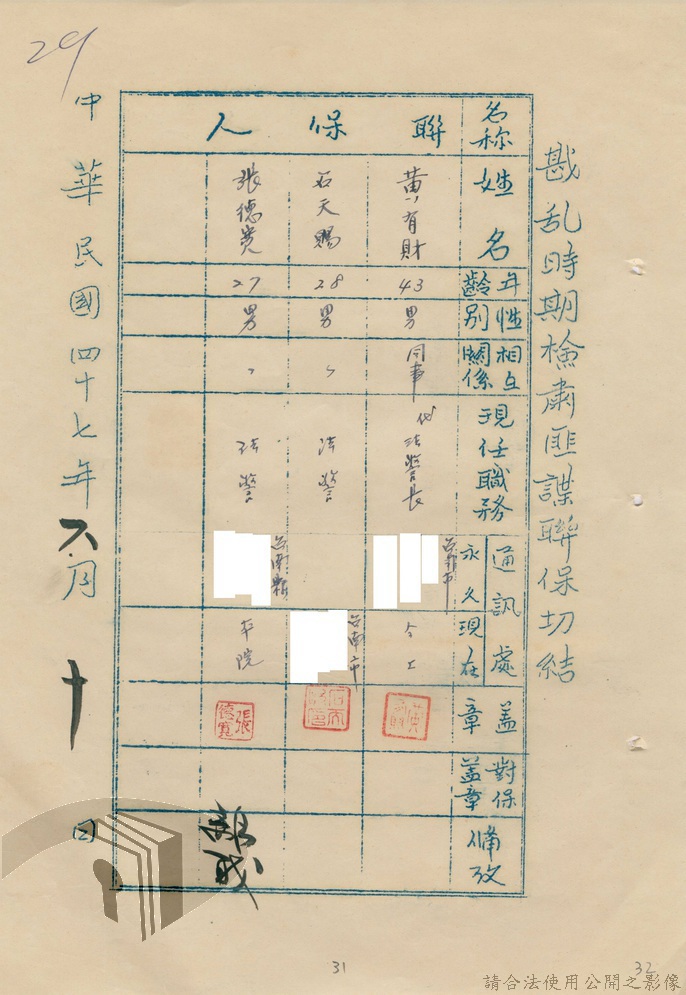 29
戡乱時期檢肅匪諜聯保切結
名称
聯保人
姓名
黃有財
石天賜
張德寬
年齡
43
28
27
性別
男
男
男
相互關係
同事
〃
〃
現任職務
代法警長
法警
法警
通訊處
永久
台南市
台南縣
現在
仝上
台南市
本院
盖章
張德寬
對保盖章
備攷
中華民國四十七年六月十日
31
32
請合法使用公開之影像